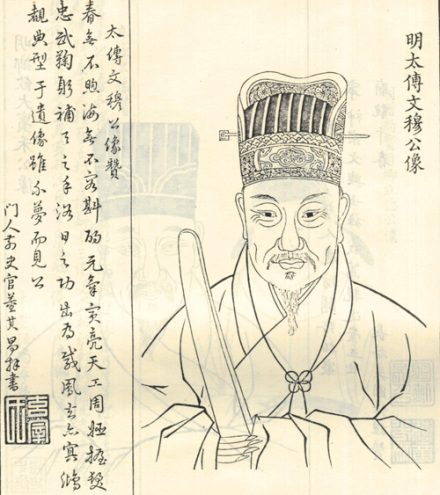 明太傅文穆公像
太傅文穆公像贊
春無不煦海無不容斟酌元氣寅亮天工周姬握髮
忠武鞠躬補天之手浴日之功出為威鳳去亦冥鴻
覩典型于遺像雖不夢而見公
門人前史官董其昌拜書